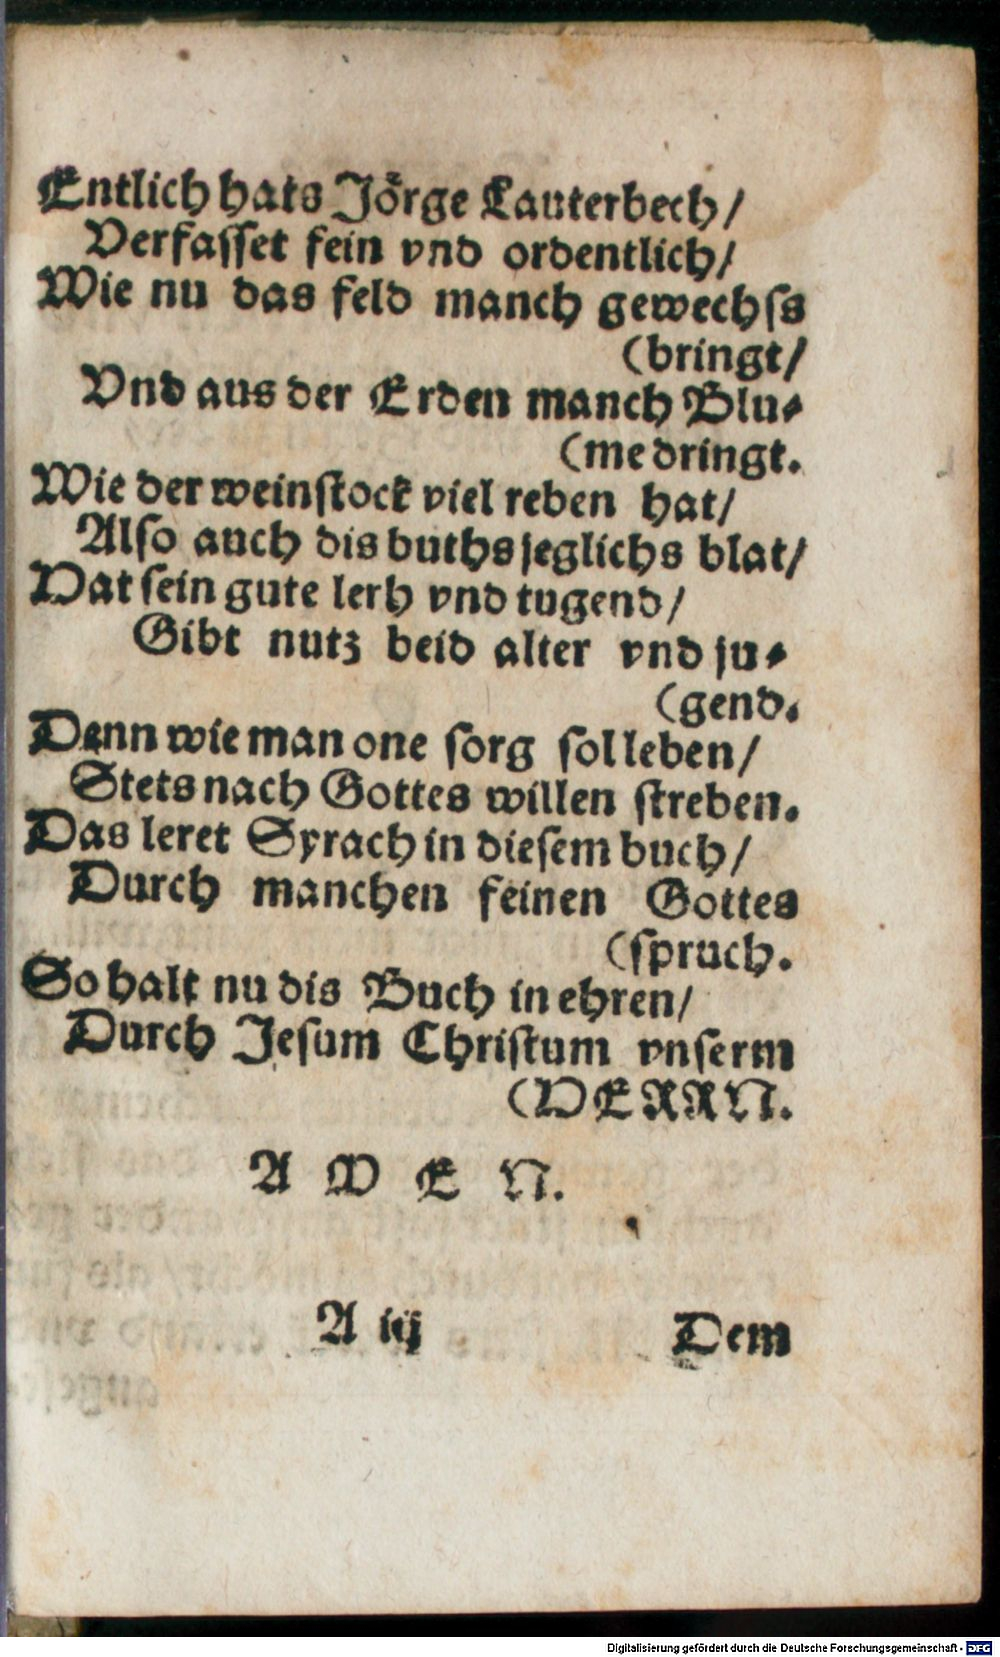 Entlich hats Jörge Lauterbech/
Verfasset fein vnd ordentlich/
Wie nu das feld manch gewechss
(bringt/
Vnd aus der Erden manch Blu-
(me dringt.
Wie der weinstock viel reben hat/
Also auch dis buchs jeglichs blat/
Hat sein gute lerh vnd tugend/
Gibt nutz beid alter vnd ju-
(gend.
Denn wie man one sorg sol leben/
Stets nach Gottes willen streben.
Das leret Syrach in diesem buch/
Durch manchen feinen Gottes
(spruch.
So halt nu dis Buch in ehren/
Durch Jesum Christum vnserm
(HERRN.
A M E N.
A iij Dem
Digitalisierung gefördert durch die Deutsche Forschungsgemeinschaft - DFG